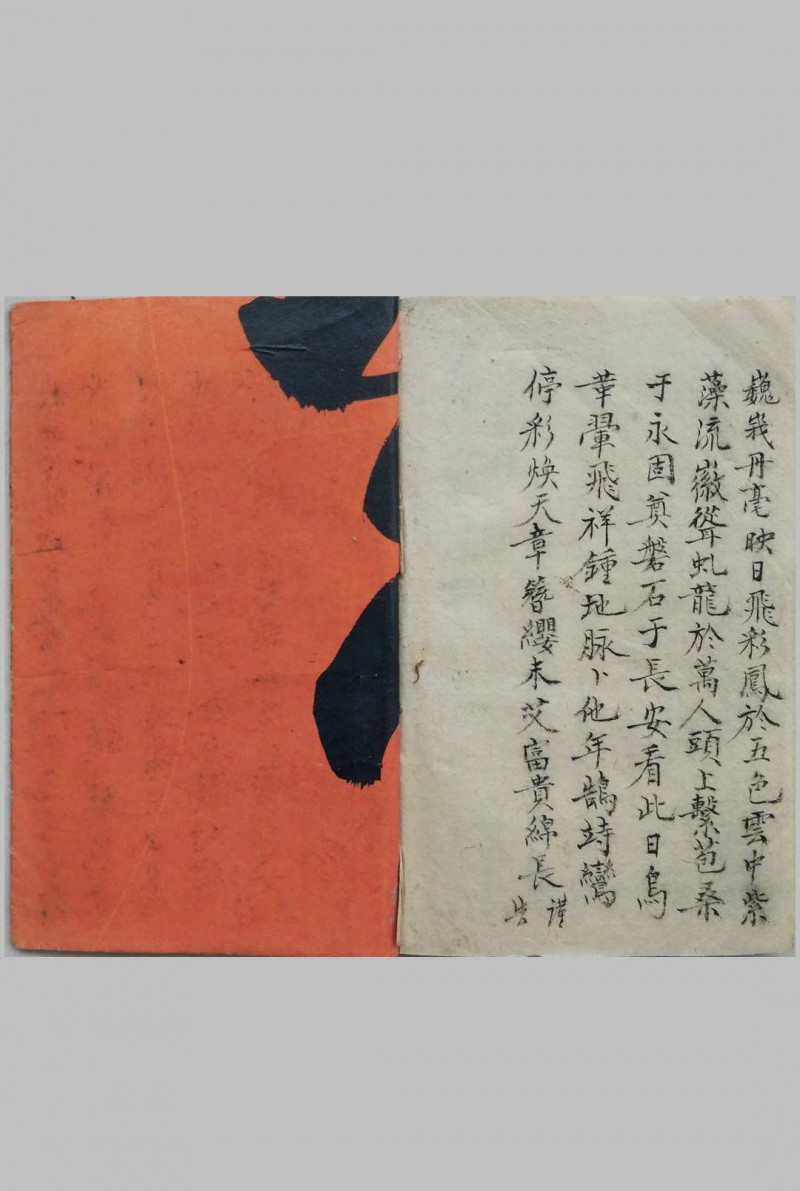 巍峩丹毫映日飛彩鳳於五色雲中紫
藻流徽聳虬龍於萬人頭上繫苞桑
于永固奠磐石于長安看此日鳥
革翬飛祥鍾地脉卜他年鵠峙鸞
停彩煥天章簪纓未艾富貴綿長
謹
告